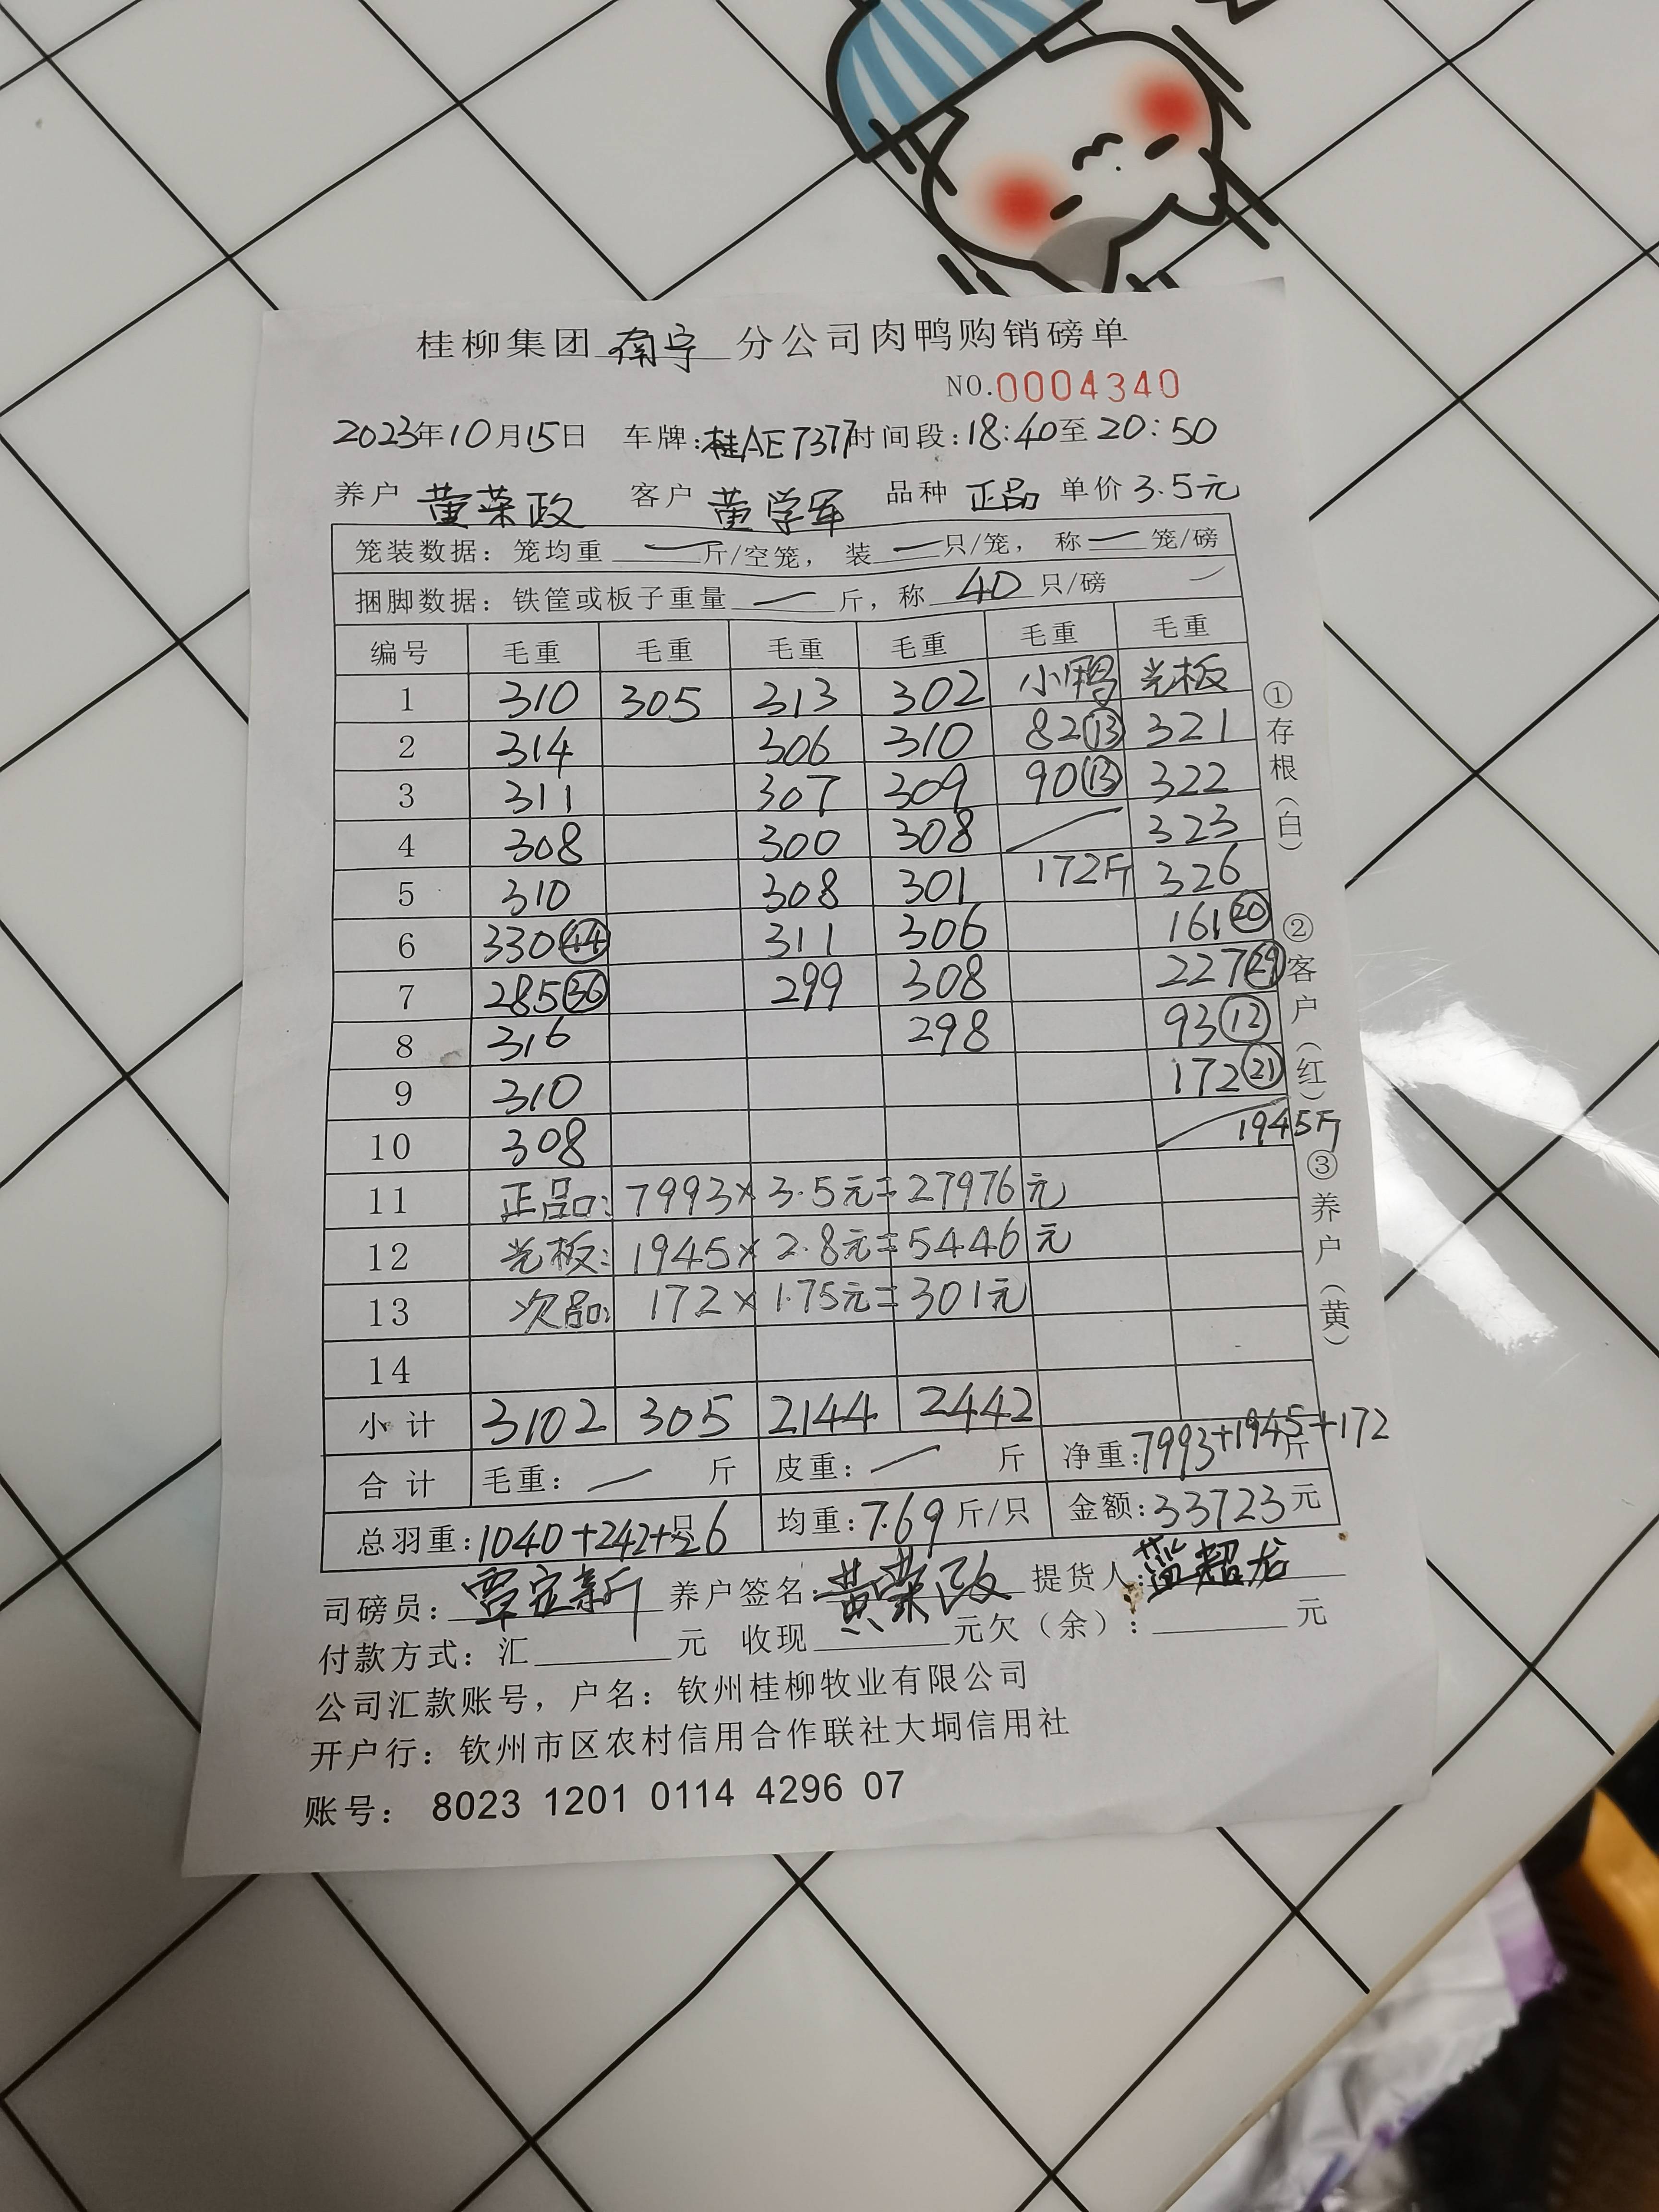 桂柳集团 南宁 分公司肉鸭购销磅单
NO.0004340
2023年10月15日 车牌:桂AE7377 时间段:18:40至20:50
养户 黄荣政 客户 黄学军 品种 正品 单价 3.5元
笼装数据：笼均重 — 斤/空笼，装 — 只/笼，称 — 笼/磅
捆脚数据：铁筐或板子重量 — 斤，称 40 只/磅
编号 毛重 毛重 毛重 毛重 毛重 毛重
1 310 305 313 302 小鸭 光板
2 314 306 310 82⑬ 321
3 311 307 309 90⑬ 322
4 308 300 308 323
5 310 308 301 172斤 326
6 330㊹ 311 306 161⑳
7 285㊱ 299 308 227㉙
8 316 298 93⑫
9 310 172㉑
10 308 1945斤
11 正品: 7993×3.5元=27976元
12 光板: 1945×2.8元=5446元
13 次品: 172×1.75元=301元
14
小计 3102 305 2144 2442
合计 毛重: — 斤 皮重: — 斤 净重:7993+1945+172斤
总羽重:1040+242+26只 均重:7.69斤/只 金额:33723元
司磅员: 覃定新 养户签名: 黄荣政 提货人: 蓝超龙
付款方式：汇 元 收现 元欠（余）: 元
公司汇款账号，户名：钦州桂柳牧业有限公司
开户行：钦州市区农村信用合作联社大垌信用社
账号： 8023 1201 0114 4296 07
①存根（白）
②客户（红）
③养户（黄）